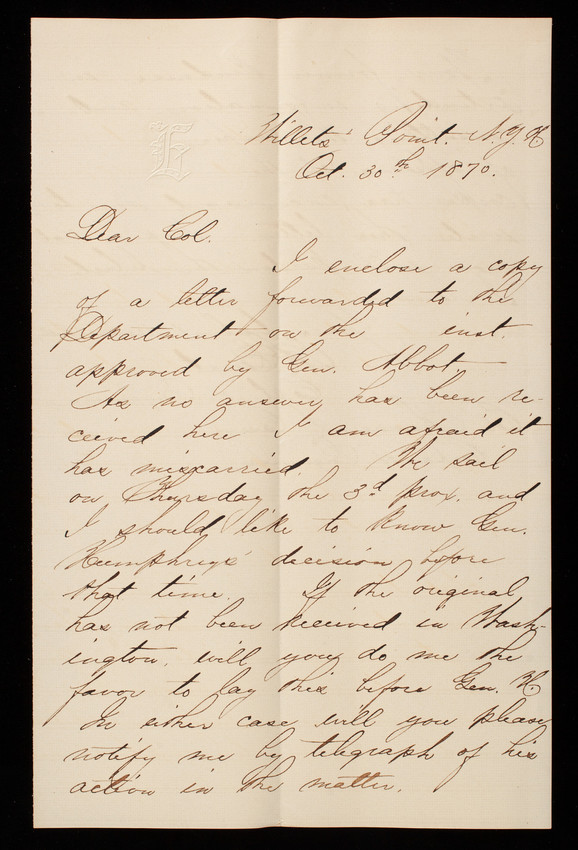 E
Willets Point. N.Y.H
Oct. 30th 1870.
Dear Col.
I enclose a copy
of a letter forwarded to the
Department on the inst.
approved by Gen. Abbot.
As no answer, has been re-
ceived here I am afraid it
has miscarried. We sail
on Thursday the 3d prox. and
I should like to know Gen.
Humphreys' decision before
that time. If the original
has not been received in Wash-
ington. will you do me the
favor to lay this before Gen. H.
In either case will you please
notify me by telegraph of his
action in the matter.